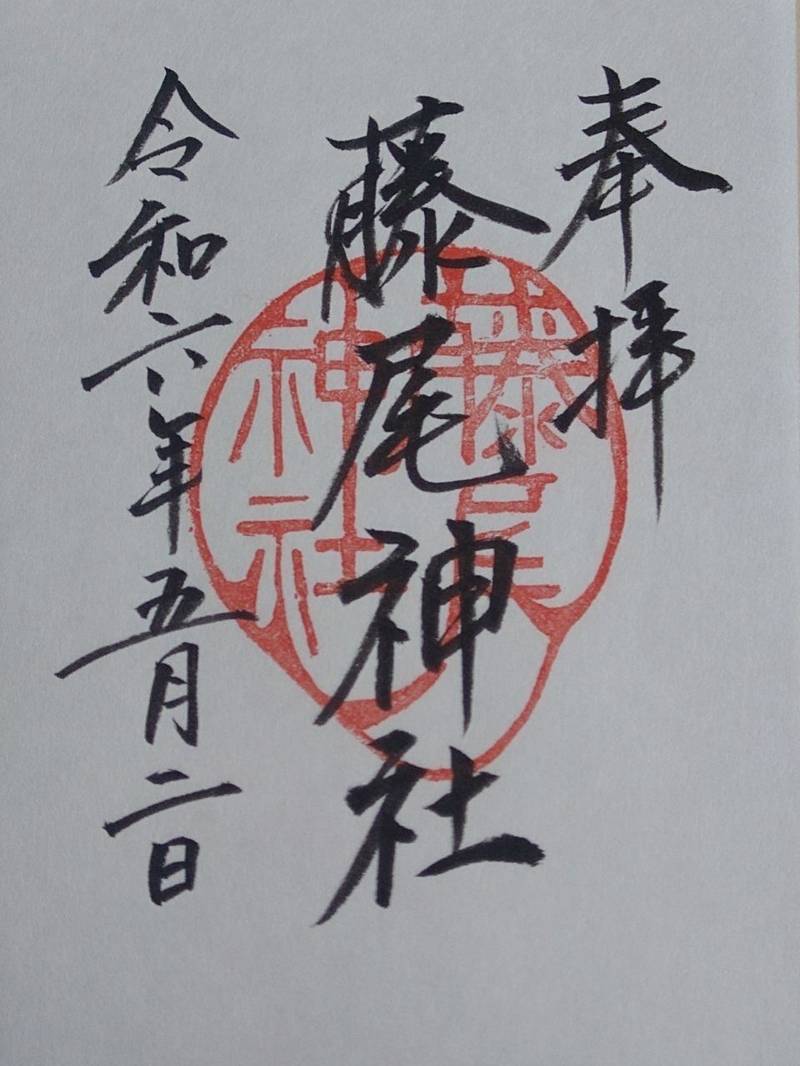 奉拝
藤尾神社
令和六年五月二日
藤尾
神社